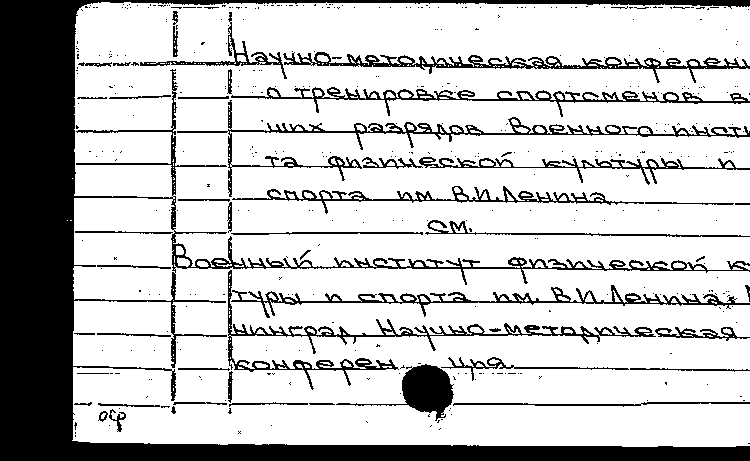 Научно-методическая конферен
о тренировке спортсменов в
ших разрядов Военного инсти
та физической культуры и
спорта им В.И.Ленина
см.
Военный институт физической к
туры и спорта им. В.И.Ленина,
нинград. Научно-методическая
конферен ция.
оср